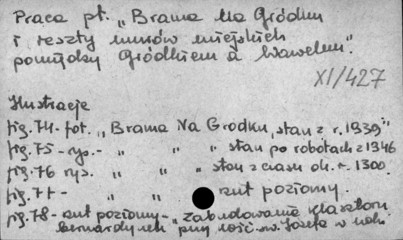 Praca pt. „Brama Na Gródku
i reszty murów miejskich
pomiędzy Gródkiem a Wawelem".
XI/427
Ilustracje
fig. 74 - fot. „Brama Na Gródku, stan z r. 1939"
fig. 75 - rys. - „ „ „ stan po robotach z 1946
fig. 76 rys. „ „ „ stan z czasu ok. r. 1300.
fig. 77 - „ „ rzut poziomy.
fig. 78 - rzut poziomy - „Zabudowania klasztoru
bernardynek przy kość. św. Józefa w